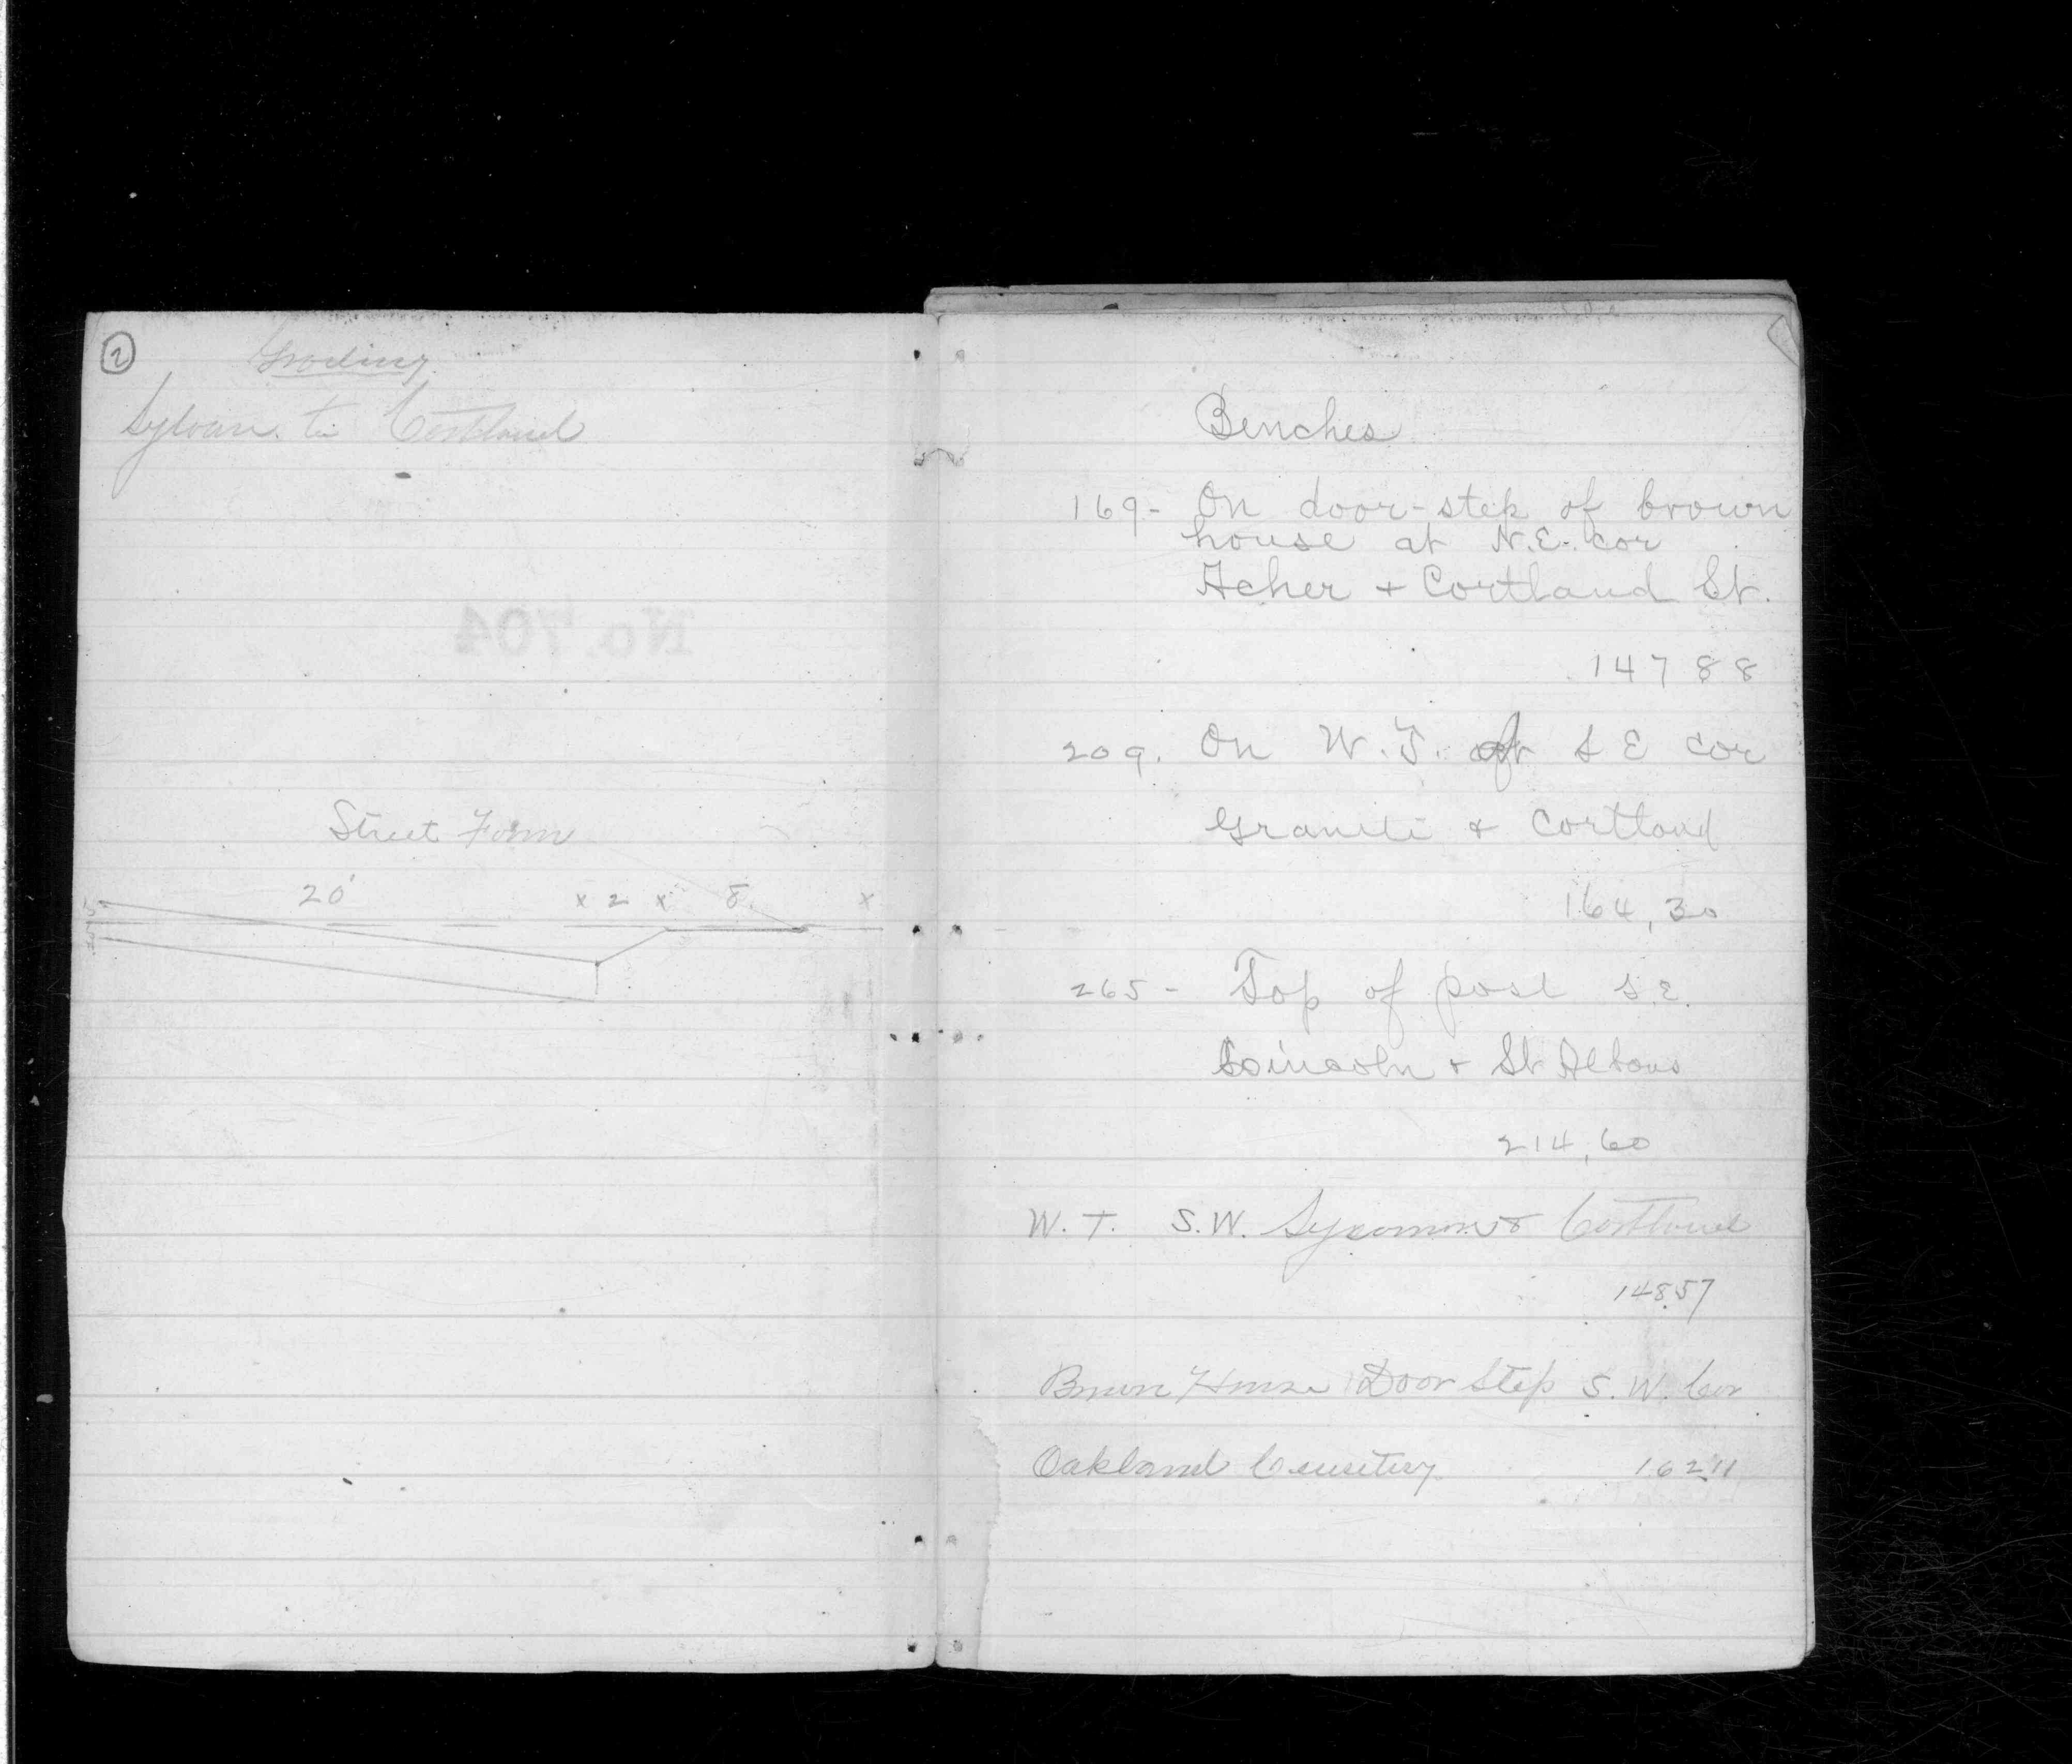 2
Grading
Sylvan to Cortland
No. 704
Street Form
20' x 2 x 8 x
Benches
169- On door-step of brown
house at N.E. cor
Acher + Cortland St.
147 88
209. On W.T. at S E cor
Granite + Cortland
164,30
265- Top of post S.E.
Lincoln + St Albans
214,60
W. T. S.W. Sycamore & Cortland
148.57
Brown House Door Step S. W. Cor
Oakland Cemetery 162.11